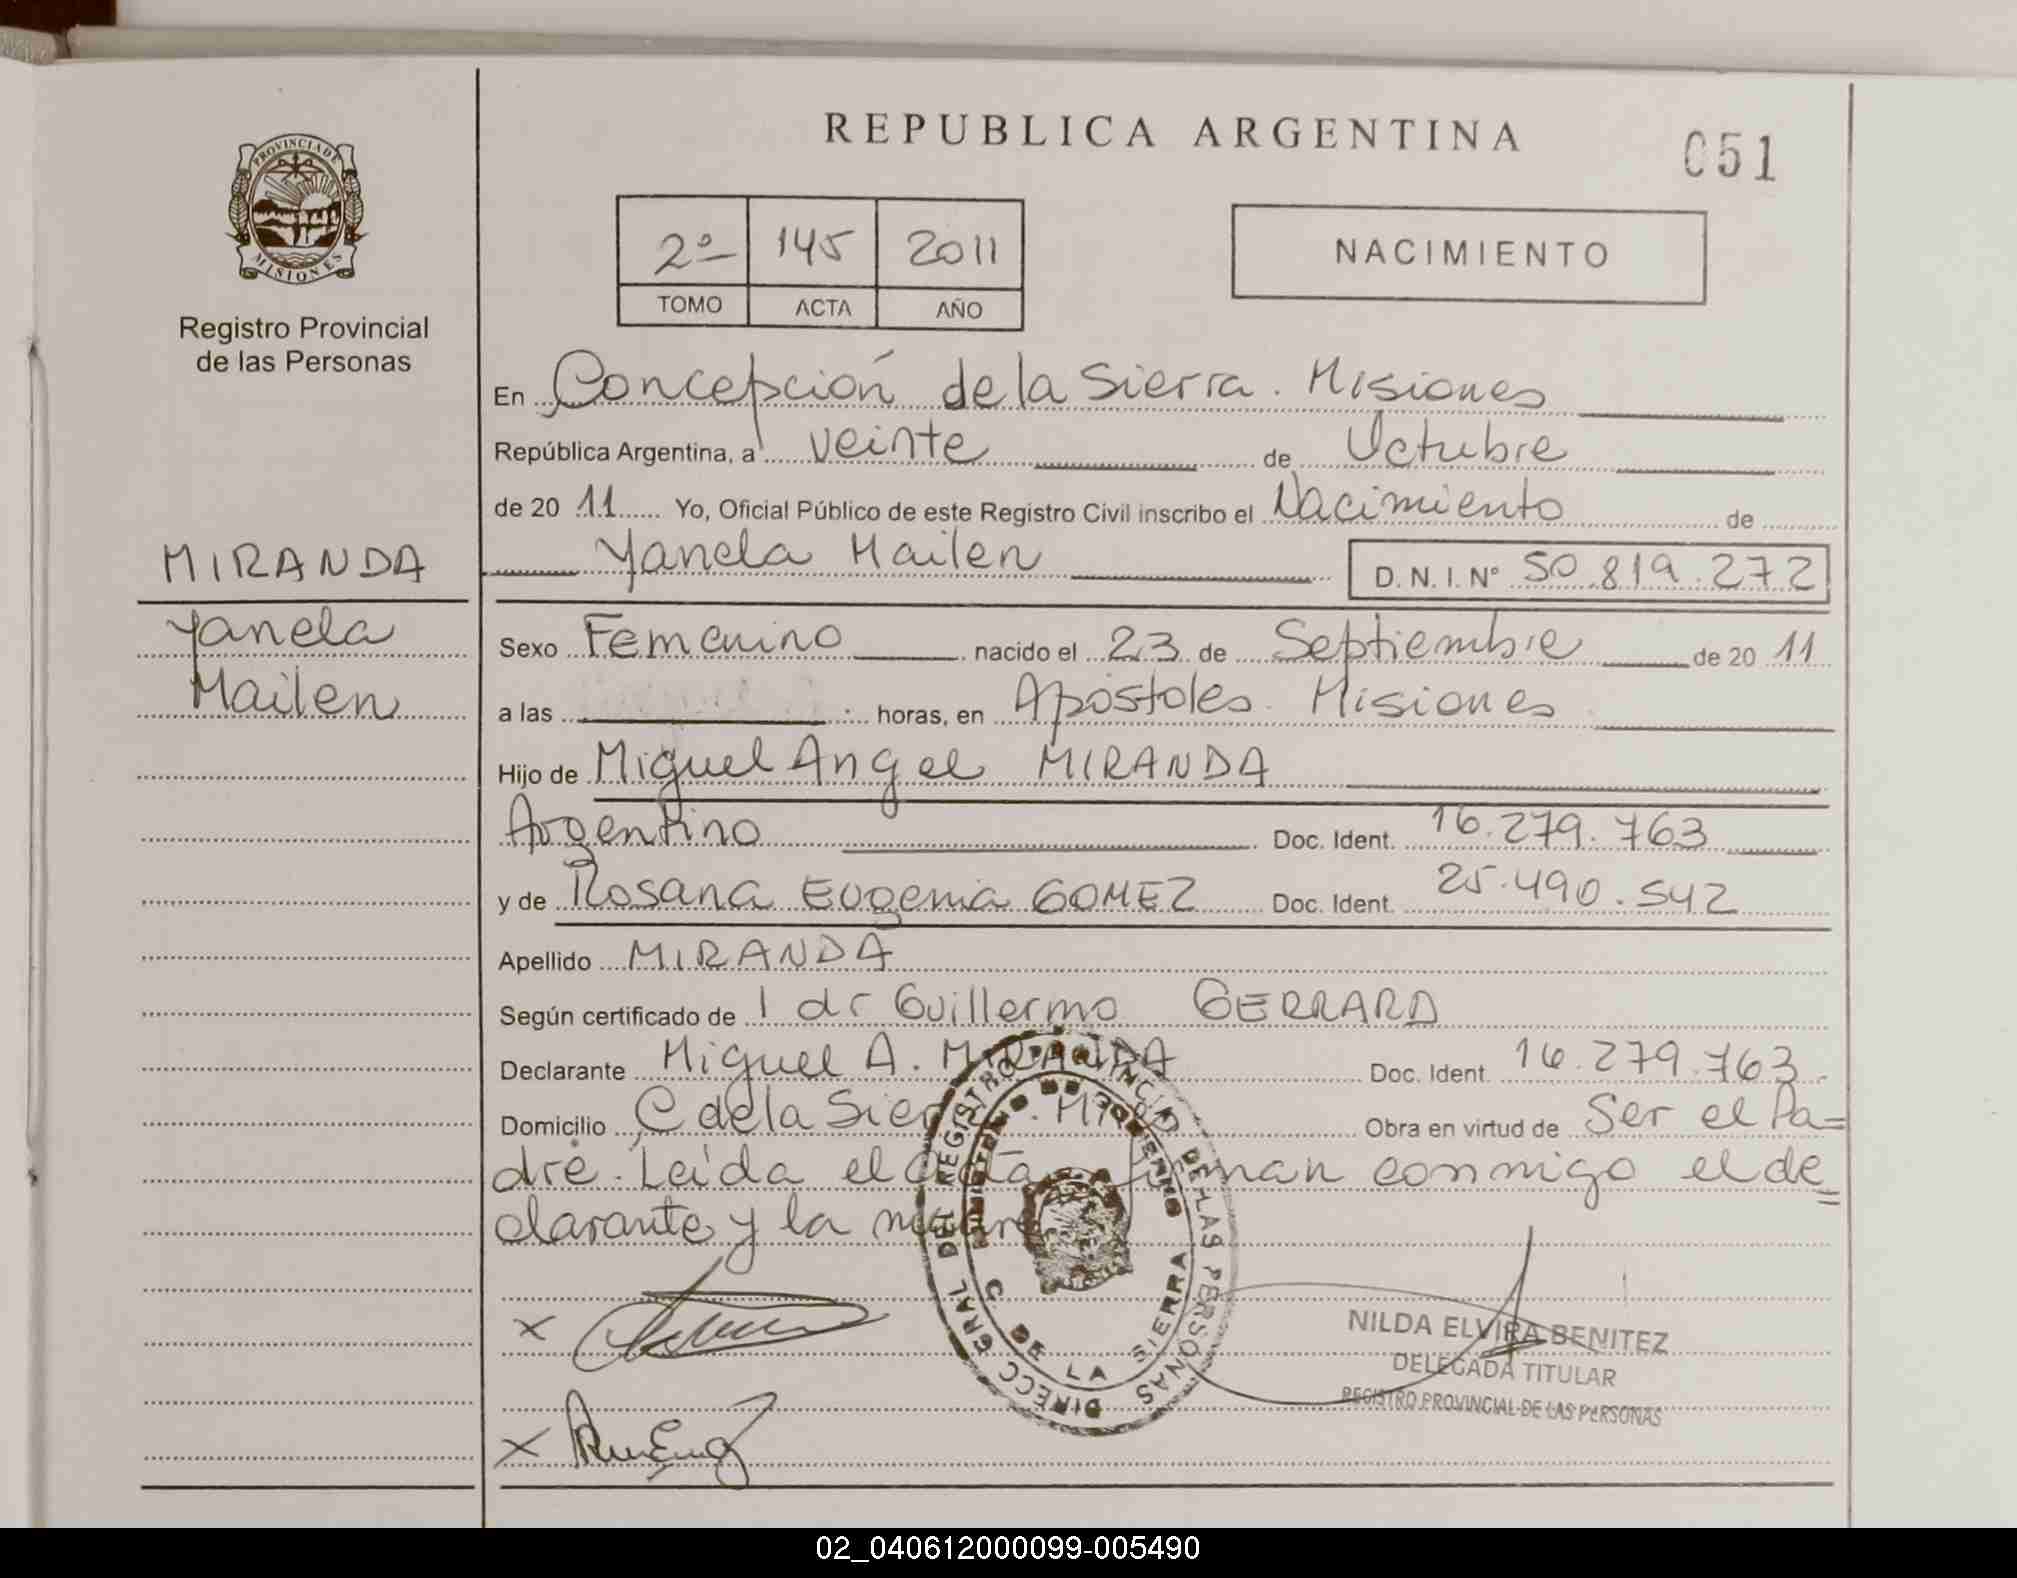 REPUBLICA ARGENTINA
051
PROVINCIA DE
MISIONES
Registro Provincial
de las Personas
2º 145 2011
TOMO ACTA AÑO
NACIMIENTO
En Concepción de la Sierra. Misiones
República Argentina, a veinte de Octubre
de 20 11 Yo, Oficial Público de este Registro Civil inscribo el Nacimiento de
Yanela Mailen D.N.I. Nº 50.819.272
MIRANDA
Yanela
Mailen
Sexo Femenino nacido el 23 de Septiembre de 20 11
a las horas, en Apóstoles. Misiones
Hijo de Miguel Angel MIRANDA
Argentino Doc. Ident. 16.279.763
y de Rosana Eugenia GOMEZ Doc. Ident. 25.490.542
Apellido MIRANDA
Según certificado de l dr Guillermo GERRARD
Declarante Miguel A. MIRANDA Doc. Ident. 16.279.763.
Domicilio C de la Sierra. Mnes Obra en virtud de Ser el Pa=
dre. Leída el acta firman conmigo el de=
clarante y la madre
DIRECC GRAL DEL REGISTRO PROVINCIAL DE LAS PERSONAS
MINISTERIO DE GOBIERNO
C DE LA SIERRA
X
X
NILDA ELVIRA BENITEZ
DELEGADA TITULAR
REGISTRO PROVINCIAL DE LAS PERSONAS
02_040612000099-005490